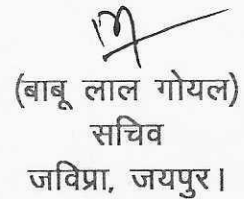 (बाबू लाल गोयल)
सचिव
जविप्रा, जयपुर।